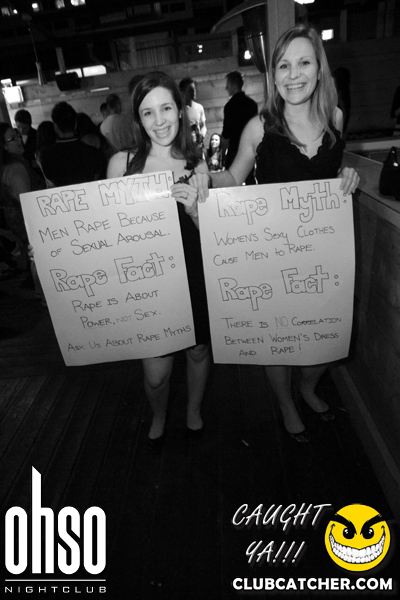 RAPE MYTH:
MEN RAPE BECAUSE
OF SEXUAL AROUSAL.
Rape Fact:
RAPE IS ABOUT
POWER, NOT SEX.
ASK US ABOUT RAPE MYTHS
Rape Myth:
WOMEN'S SEXY CLOTHES
CAUSE MEN TO RAPE.
Rape Fact:
THERE IS NO CORRELATION
BETWEEN WOMEN'S DRESS
AND RAPE!
ohso
NIGHTCLUB
CAUGHT
YA!!!
CLUBCATCHER.COM